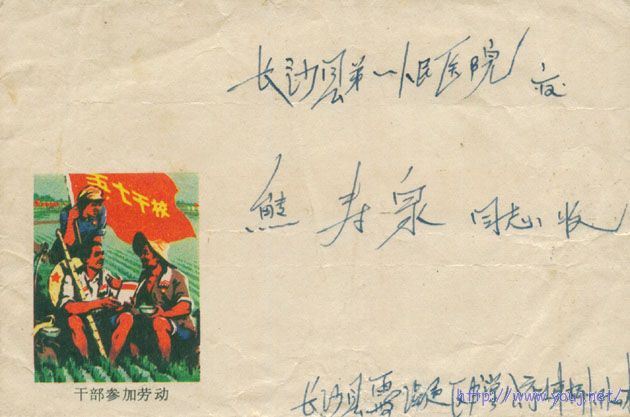 长沙县第一人民医院
五七干校
熊寿泉 同志收
干部参加劳动
长沙县
http://www.youj.net/